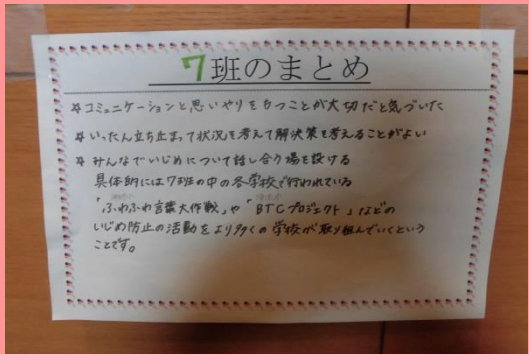 7班のまとめ
☆コミュニケーションと思いやりをもつことが大切だと気づいた
☆いったん立ち止まって状況を考えて解決策を考えることがよい
☆みんなでいじめについて話し合う場を設ける
具体的には7班の中の各学校で行われている
「ふわふわ言葉大作戦」や「BTCプロジェクト」などの
いじめ防止の活動をより多くの学校が取り組んでいくという
ことです。